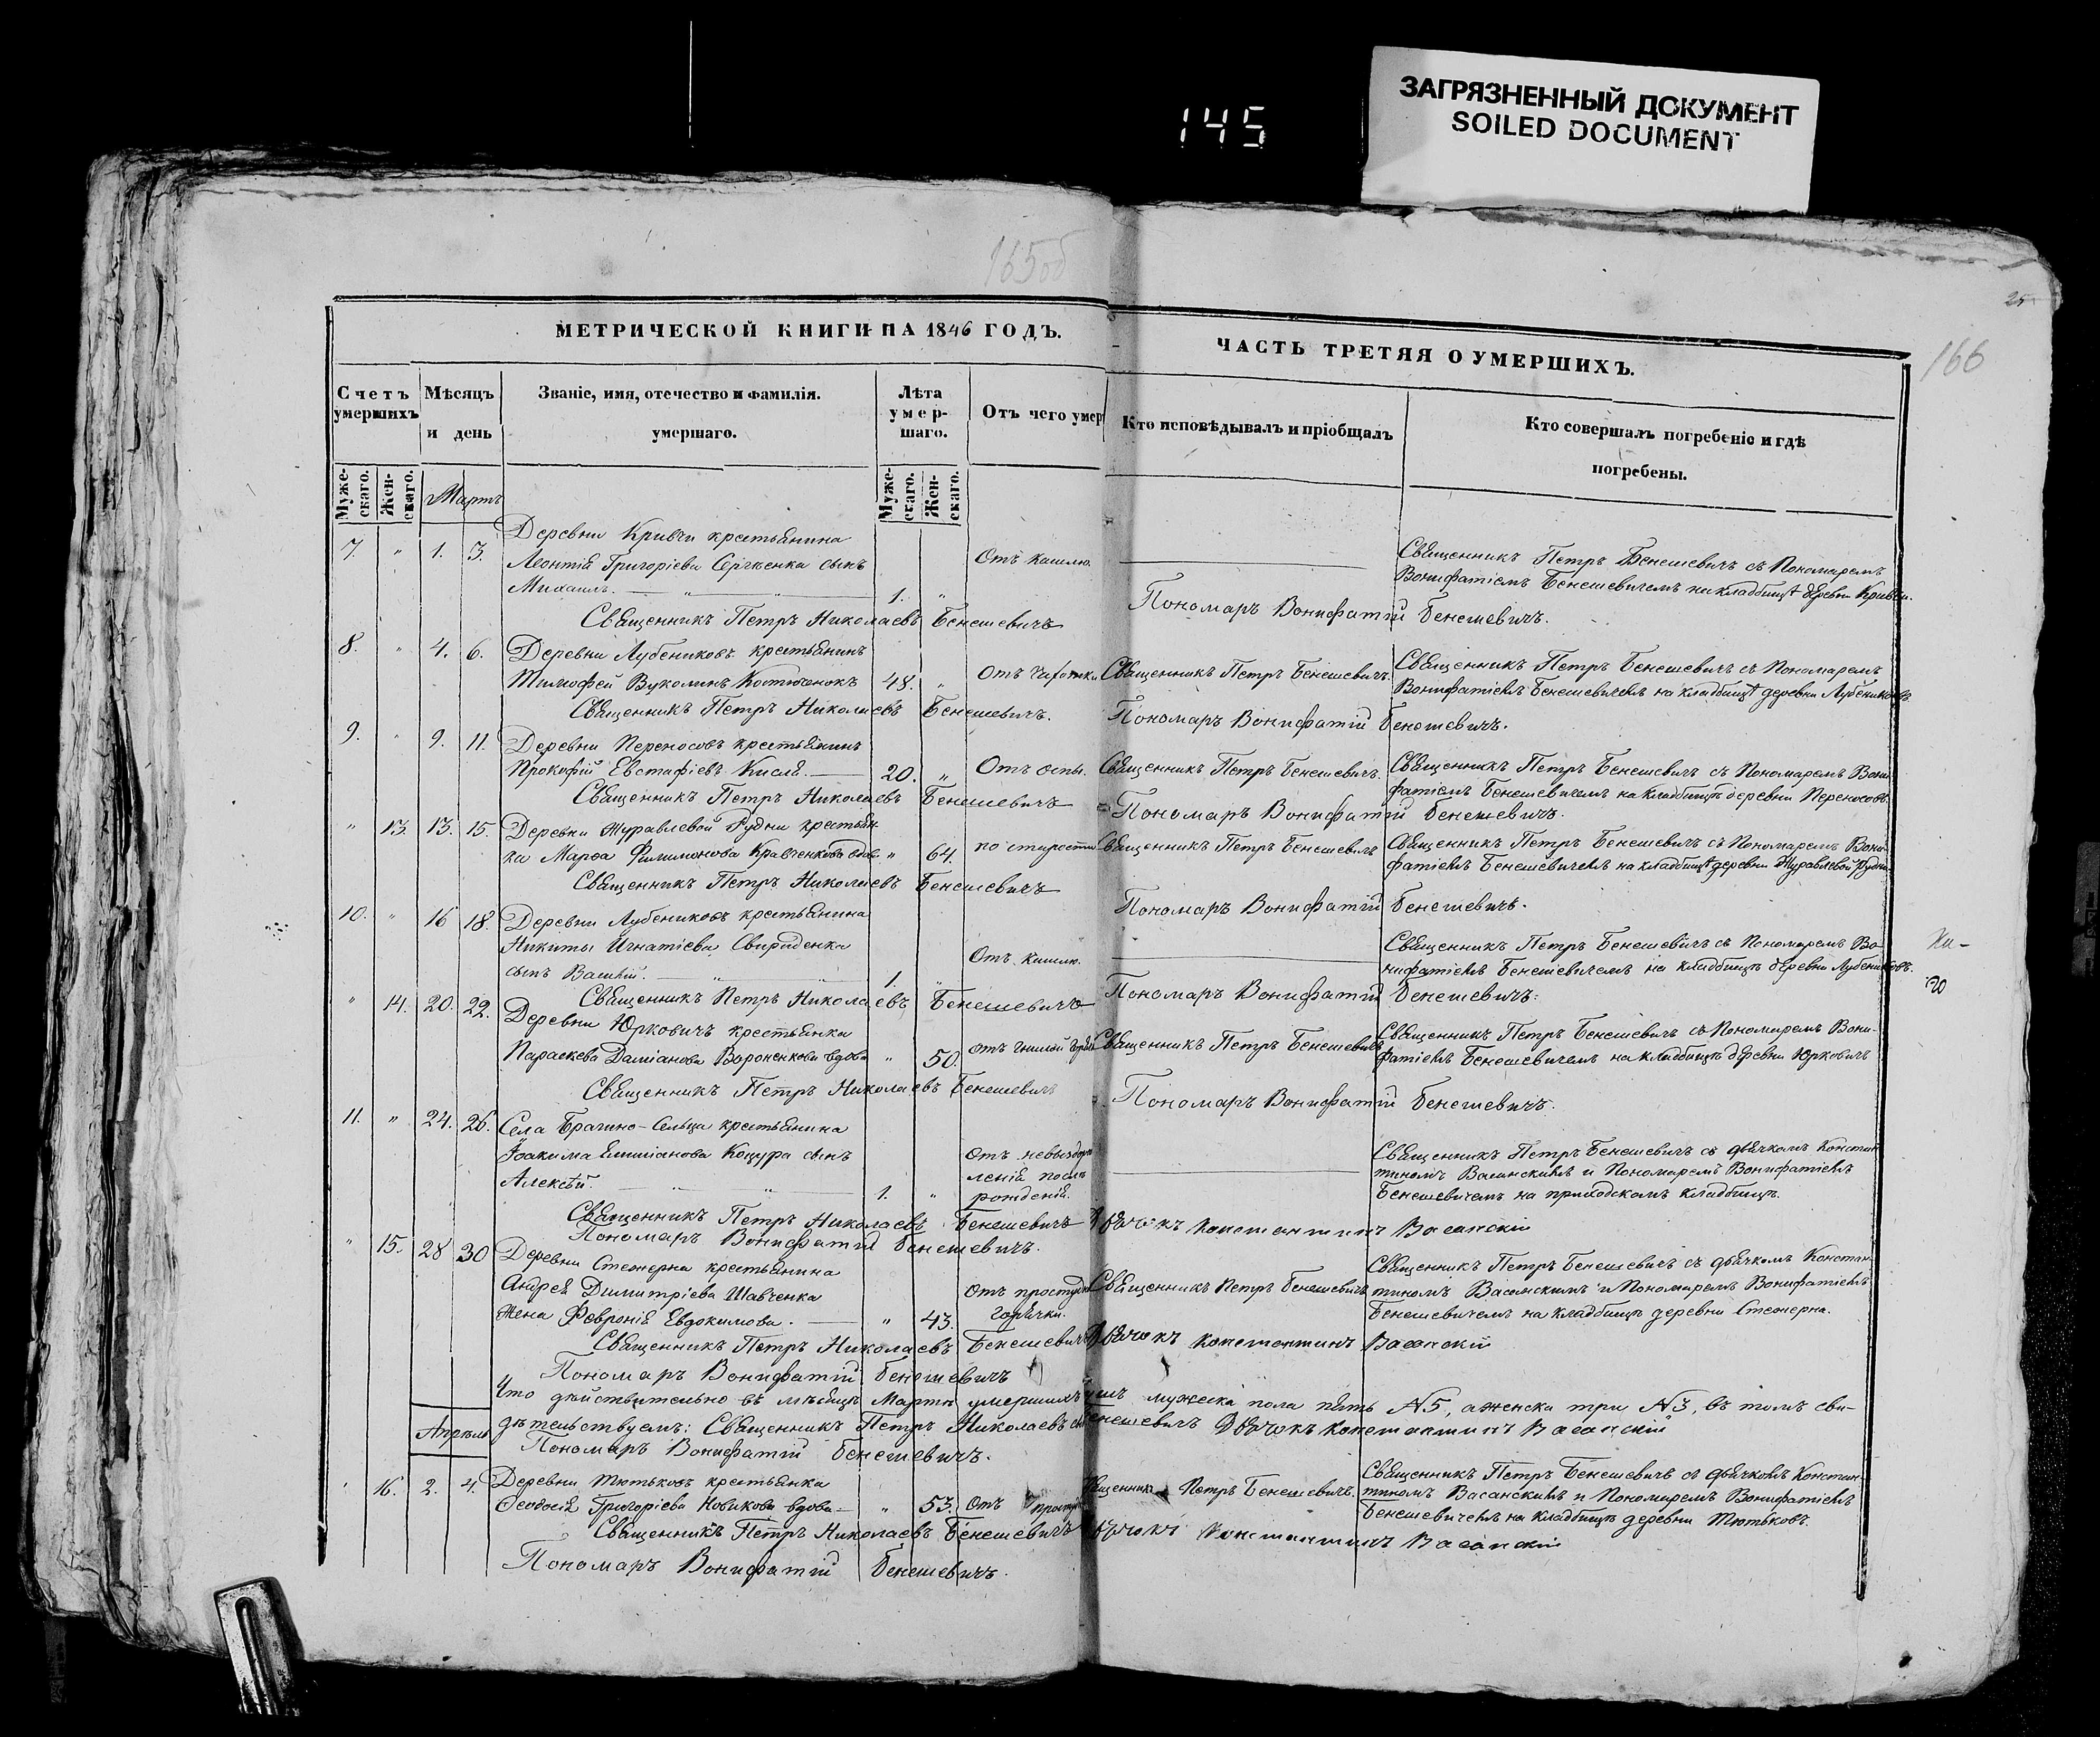 145
ЗАГРЯЗНЕННЫЙ ДОКУМЕНТ
SOILED DOCUMENT
165об
25
166
МЕТРИЧЕСКОЙ КНИГИ НА 1846 ГОДЪ.
ЧАСТЬ ТРЕТЯЯ О УМЕРШИХЪ.
Счетъ умершихъ
Мѣсяцъ и день
Званіе, имя, отечество и фамилія. умершаго.
Лѣта умер-шаго.
Отъ чего умер
Кто исповѣдывалъ и пріобщалъ
Кто совершалъ погребеніе и гдѣ погребены.
Муже-скаго.
Жен-скаго.
Мартъ
Муже-скаго.
Жен-скаго.
7. " 1. 3. Деревни Кривчи крестьянина
Леонтія Григоріева сынъ
Михаилъ. 1. "
Отъ кашлю.
Священникъ Петръ Бенешевичъ съ Пономаремъ
Вонифатіемъ Бенешевичемъ на кладбищѣ деревни Кривчи.
Священникъ Петръ Николаевъ Бенешевичъ
Пономаръ Вонифатій Бенешевичъ.
8. " 4. 6. Деревни Лубениковъ крестьянинъ
Тимофей Вуколинъ Костюченокъ 48. "
Отъ чахотки
Священникъ Петръ Бенешевичъ.
Священникъ Петръ Бенешевичъ съ Пономаремъ
Вонифатіемъ Бенешевичемъ на кладбищѣ деревни Лубениковъ.
Священникъ Петръ Николаевъ Бенешевичъ.
Пономаръ Вонифатій Бенешевичъ.
9. " 9. 11. Деревни Переносовъ крестьянинъ
Прокофій Евстафіевъ Кисля. 20. "
Отъ оспы.
Священникъ Петръ Бенешевичъ.
Священникъ Петръ Бенешевичъ съ Пономаремъ Вони-
фатіемъ Бенешевичемъ на кладбищѣ деревни Переносовъ.
Священникъ Петръ Николаевъ Бенешевичъ
Пономаръ Вонифатій Бенешевичъ.
" 13. 13. 15. Деревни Журавлевой Рудни крестьян-
ка Марѳа Филимонова Кравченкова вдов. " 64.
по старости
Священникъ Петръ Бенешевичъ
Священникъ Петръ Бенешевичъ съ Пономаремъ Вони-
фатіемъ Бенешевичемъ на кладбищѣ деревни Журавлевой Рудни.
Священникъ Петръ Николаевъ Бенешевичъ
Пономаръ Вонифатій Бенешевичъ.
10. " 16 18. Деревни Лубениковъ крестьянина
Никиты Игнатіева Свириденка
сынъ Василій. 1. "
Отъ кашлю.
Священникъ Петръ Бенешевичъ съ Пономаремъ Во-
нифатіемъ Бенешевичемъ на кладбищѣ деревни Лубениковъ.
Священникъ Петръ Николаевъ Бенешевичъ
Пономаръ Вонифатій Бенешевичъ.
" 14. 20. 22. Деревни Юрковичъ крестьянка
Параскева Даміанова Вороненкова вдова " 50.
отъ гнилой
Священникъ Петръ Бенешевичъ
Священникъ Петръ Бенешевичъ съ Пономаремъ Вони-
фатіемъ Бенешевичемъ на кладбищѣ деревни Юрковичъ
Священникъ Петръ Николаевъ Бенешевичъ
Пономаръ Вонифатій Бенешевичъ.
11. " 24. 26. Села Брагино-Сельца крестьянина
Іоакима Емиліанова Коцура сынъ
Алексѣй. 1. "
Отъ невыздор
ленія послѣ
рожденія.
Священникъ Петръ Бенешевичъ съ дьячкомъ Констан-
тиномъ Васанскимъ и Пономаремъ Вонифатіемъ
Бенешевичемъ на приходскомъ кладбищѣ.
Священникъ Петръ Николаевъ Бенешевичъ Дьячокъ Константинъ Васанскій
Пономаръ Вонифатій Бенешевичъ.
" 15. 28 30 Деревни Стежерна крестьянина
Андрея Димитріева Шавченка
жена Февронія Евдокимова. " 43.
Отъ простудн
горячки.
Священникъ Петръ Бенешевичъ
Священникъ Петръ Бенешевичъ съ дьячкомъ Констан-
тиномъ Васанскимъ и Пономаремъ Вонифатіемъ
Бенешевичемъ на кладбищѣ деревни Стежерна.
Священникъ Петръ Николаевъ Бенешевичъ Дьячокъ Константинъ Васанскій
Пономаръ Вонифатій Бенешевичъ
Что дѣйствительно въ мѣсяцѣ Мартѣ умершихъ мужеска пола пять №5, а женска три №3, въ томъ сви-
дѣтельствуемъ: Священникъ Петръ Николаевъ Бенешевичъ Дьячокъ Константинъ Васанскій
Пономаръ Вонифатій Бенешевичъ.
Апрѣль
" 16. 2. 4. Деревни Тютьковъ крестьянка
Ѳеодосія Григоріева Новикова вдова " 53.
Отъ простуд
Священникъ Петръ Бенешевичъ.
Священникъ Петръ Бенешевичъ съ дьячкомъ Констан-
тиномъ Васанскимъ и Пономаремъ Вонифатіемъ
Бенешевичемъ на кладбищѣ деревни Тютьковъ.
Священникъ Петръ Николаевъ Бенешевичъ Дьячокъ Константинъ Васанскій
Пономаръ Вонифатій Бенешевичъ.